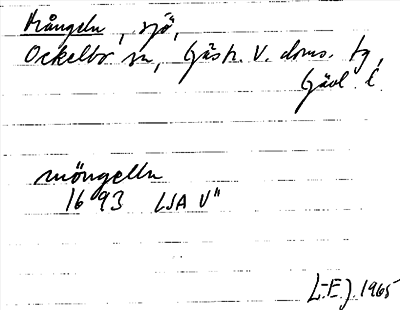 Mången, sjö,
Ockelbo sn, Gästr. V. doms. tg,
Gävl. l.
möngelln
1693 LSA V"
L-E.J. 1965